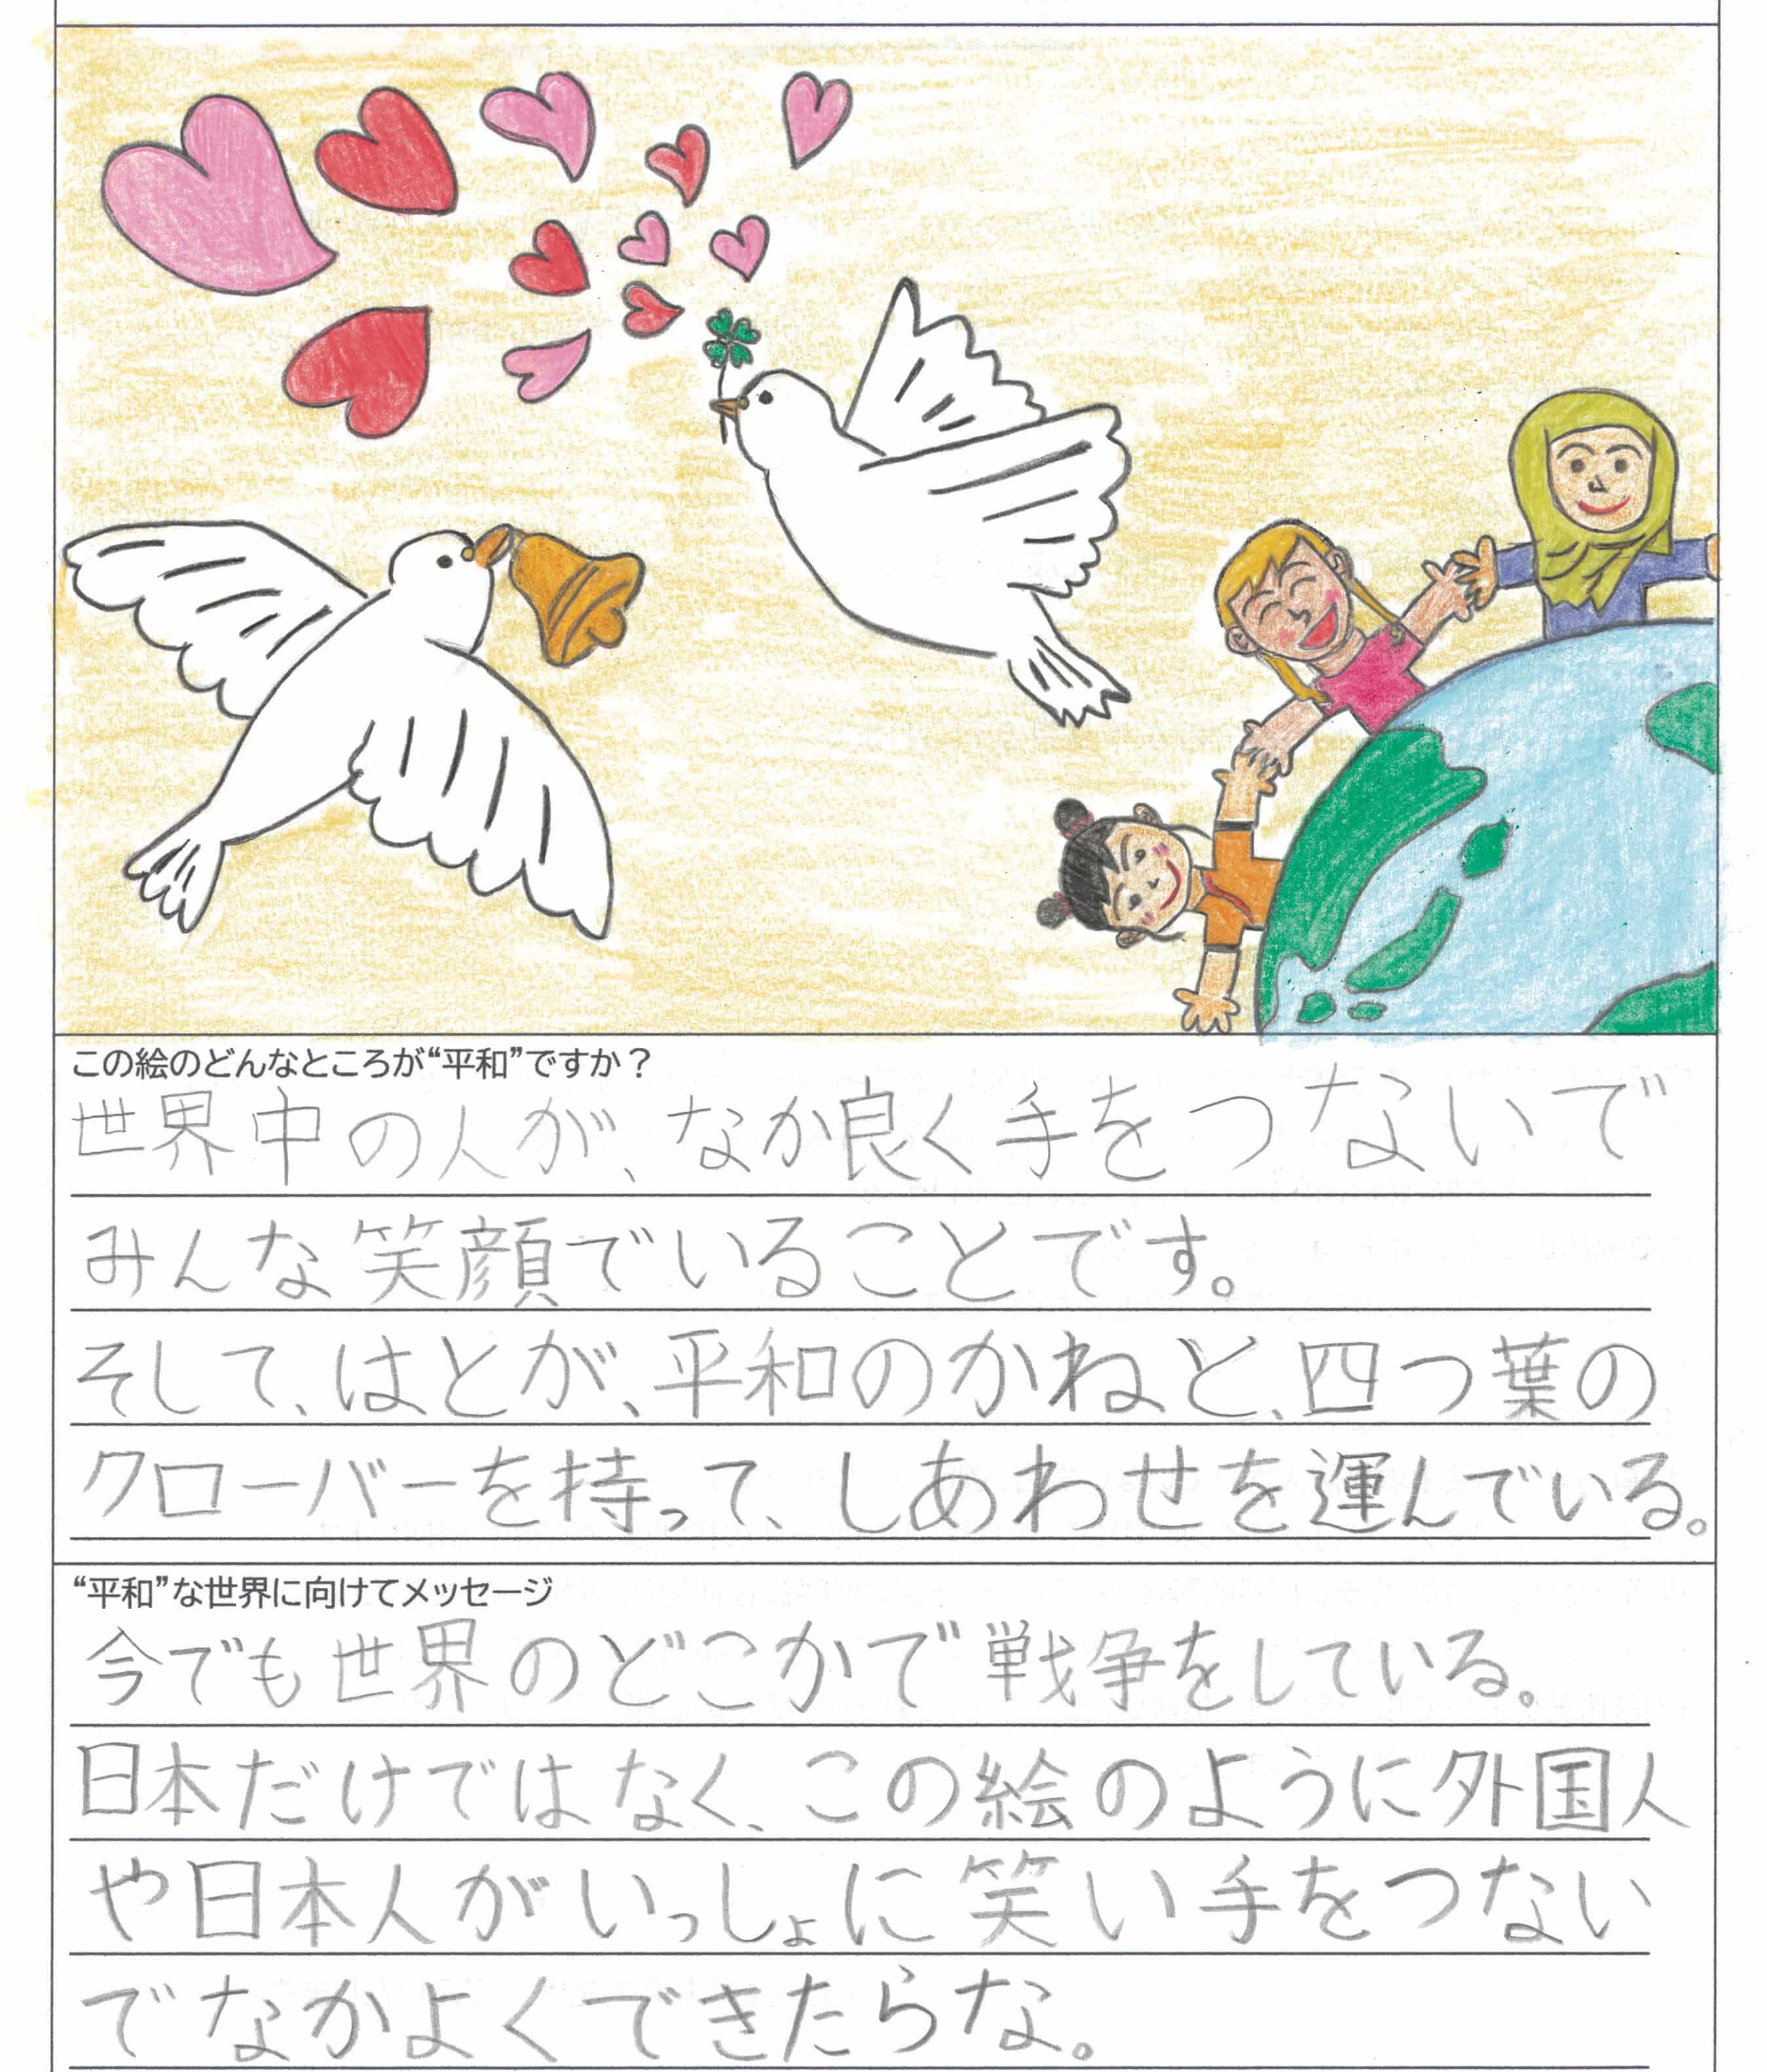 この絵のどんなところが“平和”ですか？
世界中の人が、なか良く手をつないで
みんな笑顔でいることです。
そして、はとが、平和のかねと、四つ葉の
クローバーを持って、しあわせを運んでいる。
“平和”な世界に向けてメッセージ
今でも世界のどこかで戦争をしている。
日本だけではなく、この絵のように外国人
や日本人がいっしょに笑い手をつない
でなかよくできたらな。